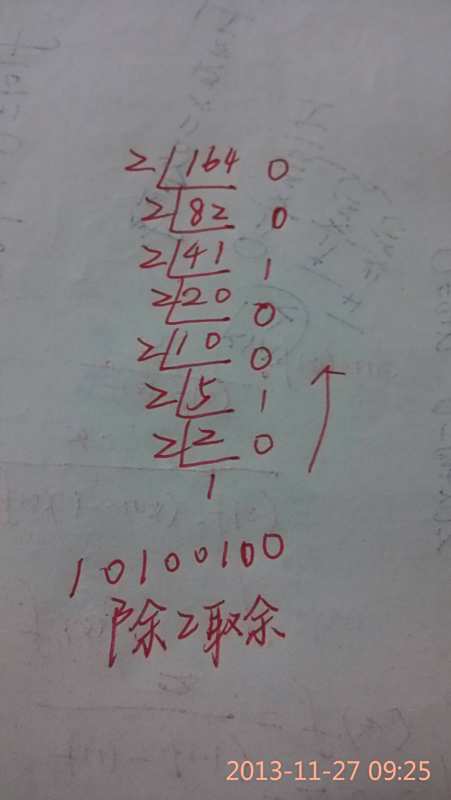 2 164 0
2 82 0
2 41 1
2 20 0
2 10 0
2 5 1
2 2 0
1
10100100
除2取余
2013-11-27 09:25